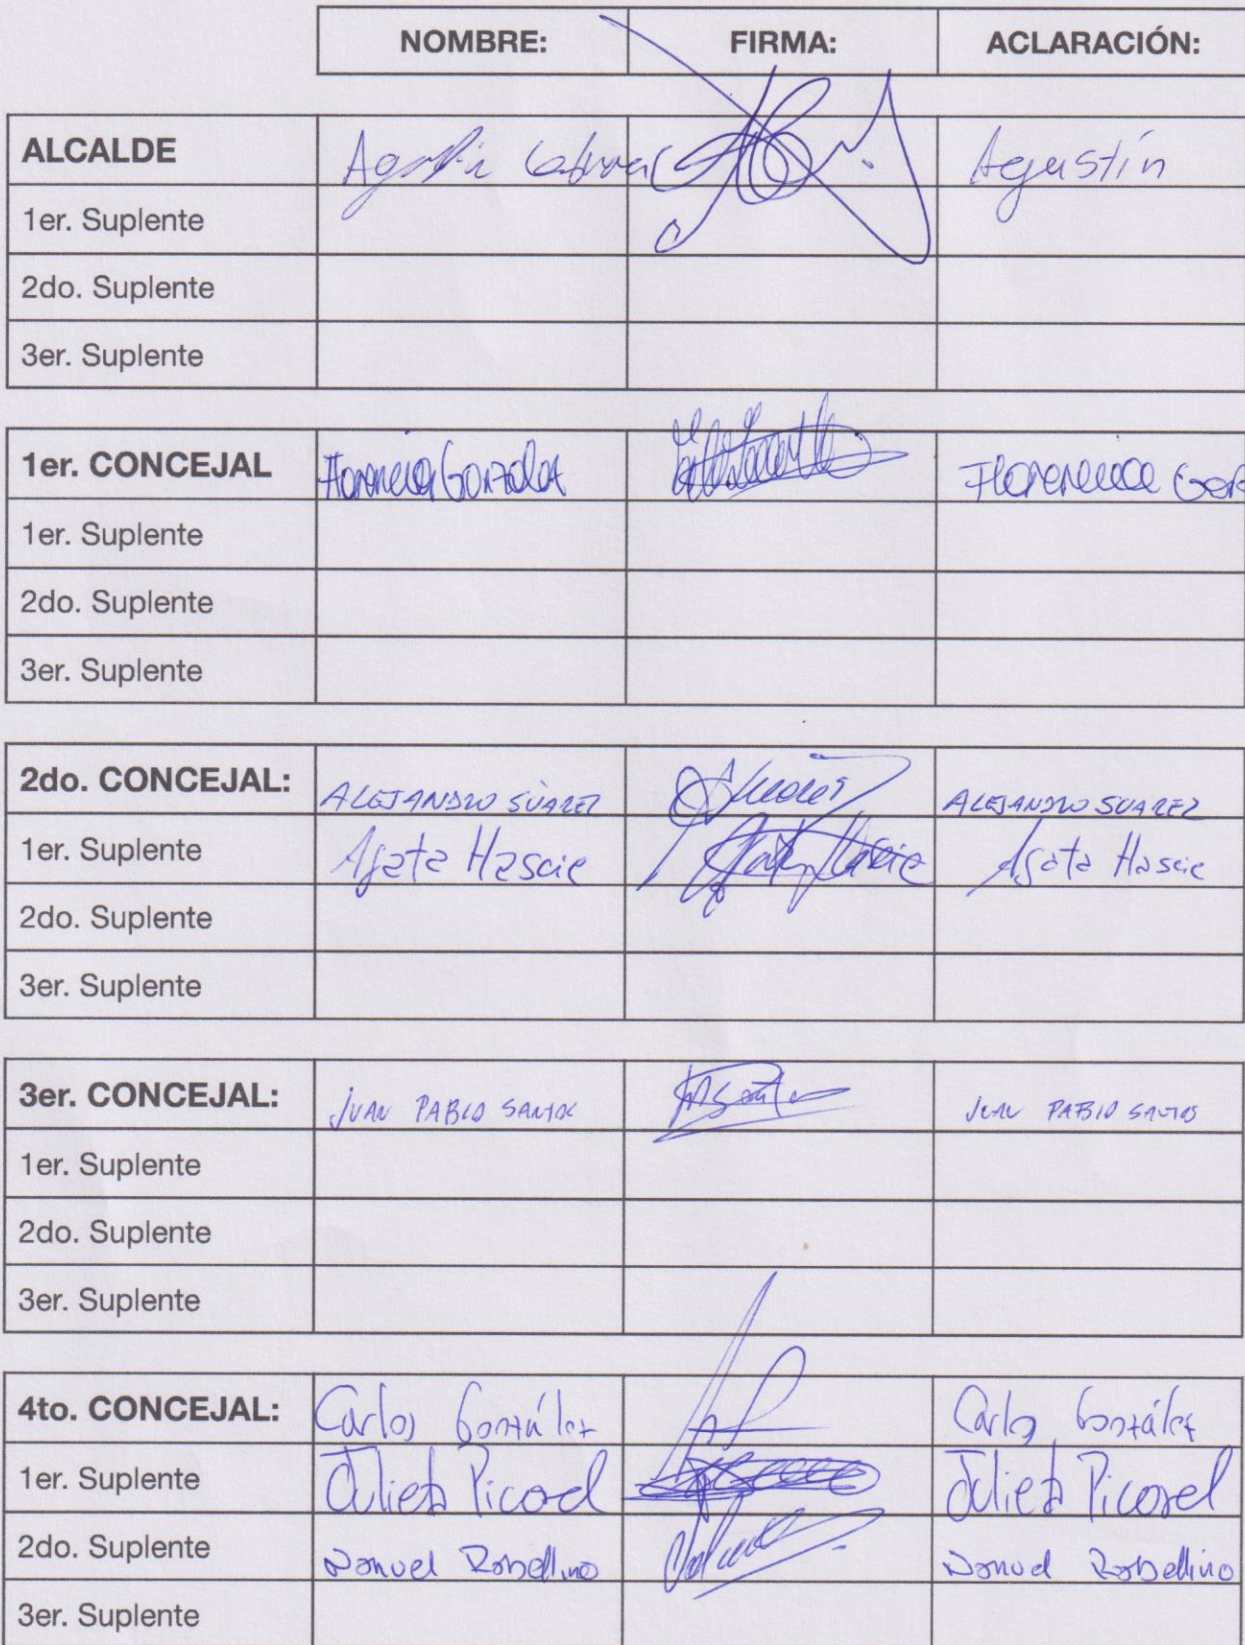 NOMBRE: FIRMA: ACLARACIÓN:
ALCALDE Agustín Agustín
1er. Suplente
2do. Suplente
3er. Suplente
1er. CONCEJAL Florencia González Florencia
1er. Suplente
2do. Suplente
3er. Suplente
2do. CONCEJAL: ALEJANDRO SUÁREZ ALEJANDRO SUAREZ
1er. Suplente Agata Hascie Agata Hascie
2do. Suplente
3er. Suplente
3er. CONCEJAL: JUAN PABLO SANTOS JUAN PABLO SANTOS
1er. Suplente
2do. Suplente
3er. Suplente
4to. CONCEJAL: Carlos González Carlos González
1er. Suplente Julieta Picorel Julieta Picorel
2do. Suplente Robellino Robellino
3er. Suplente